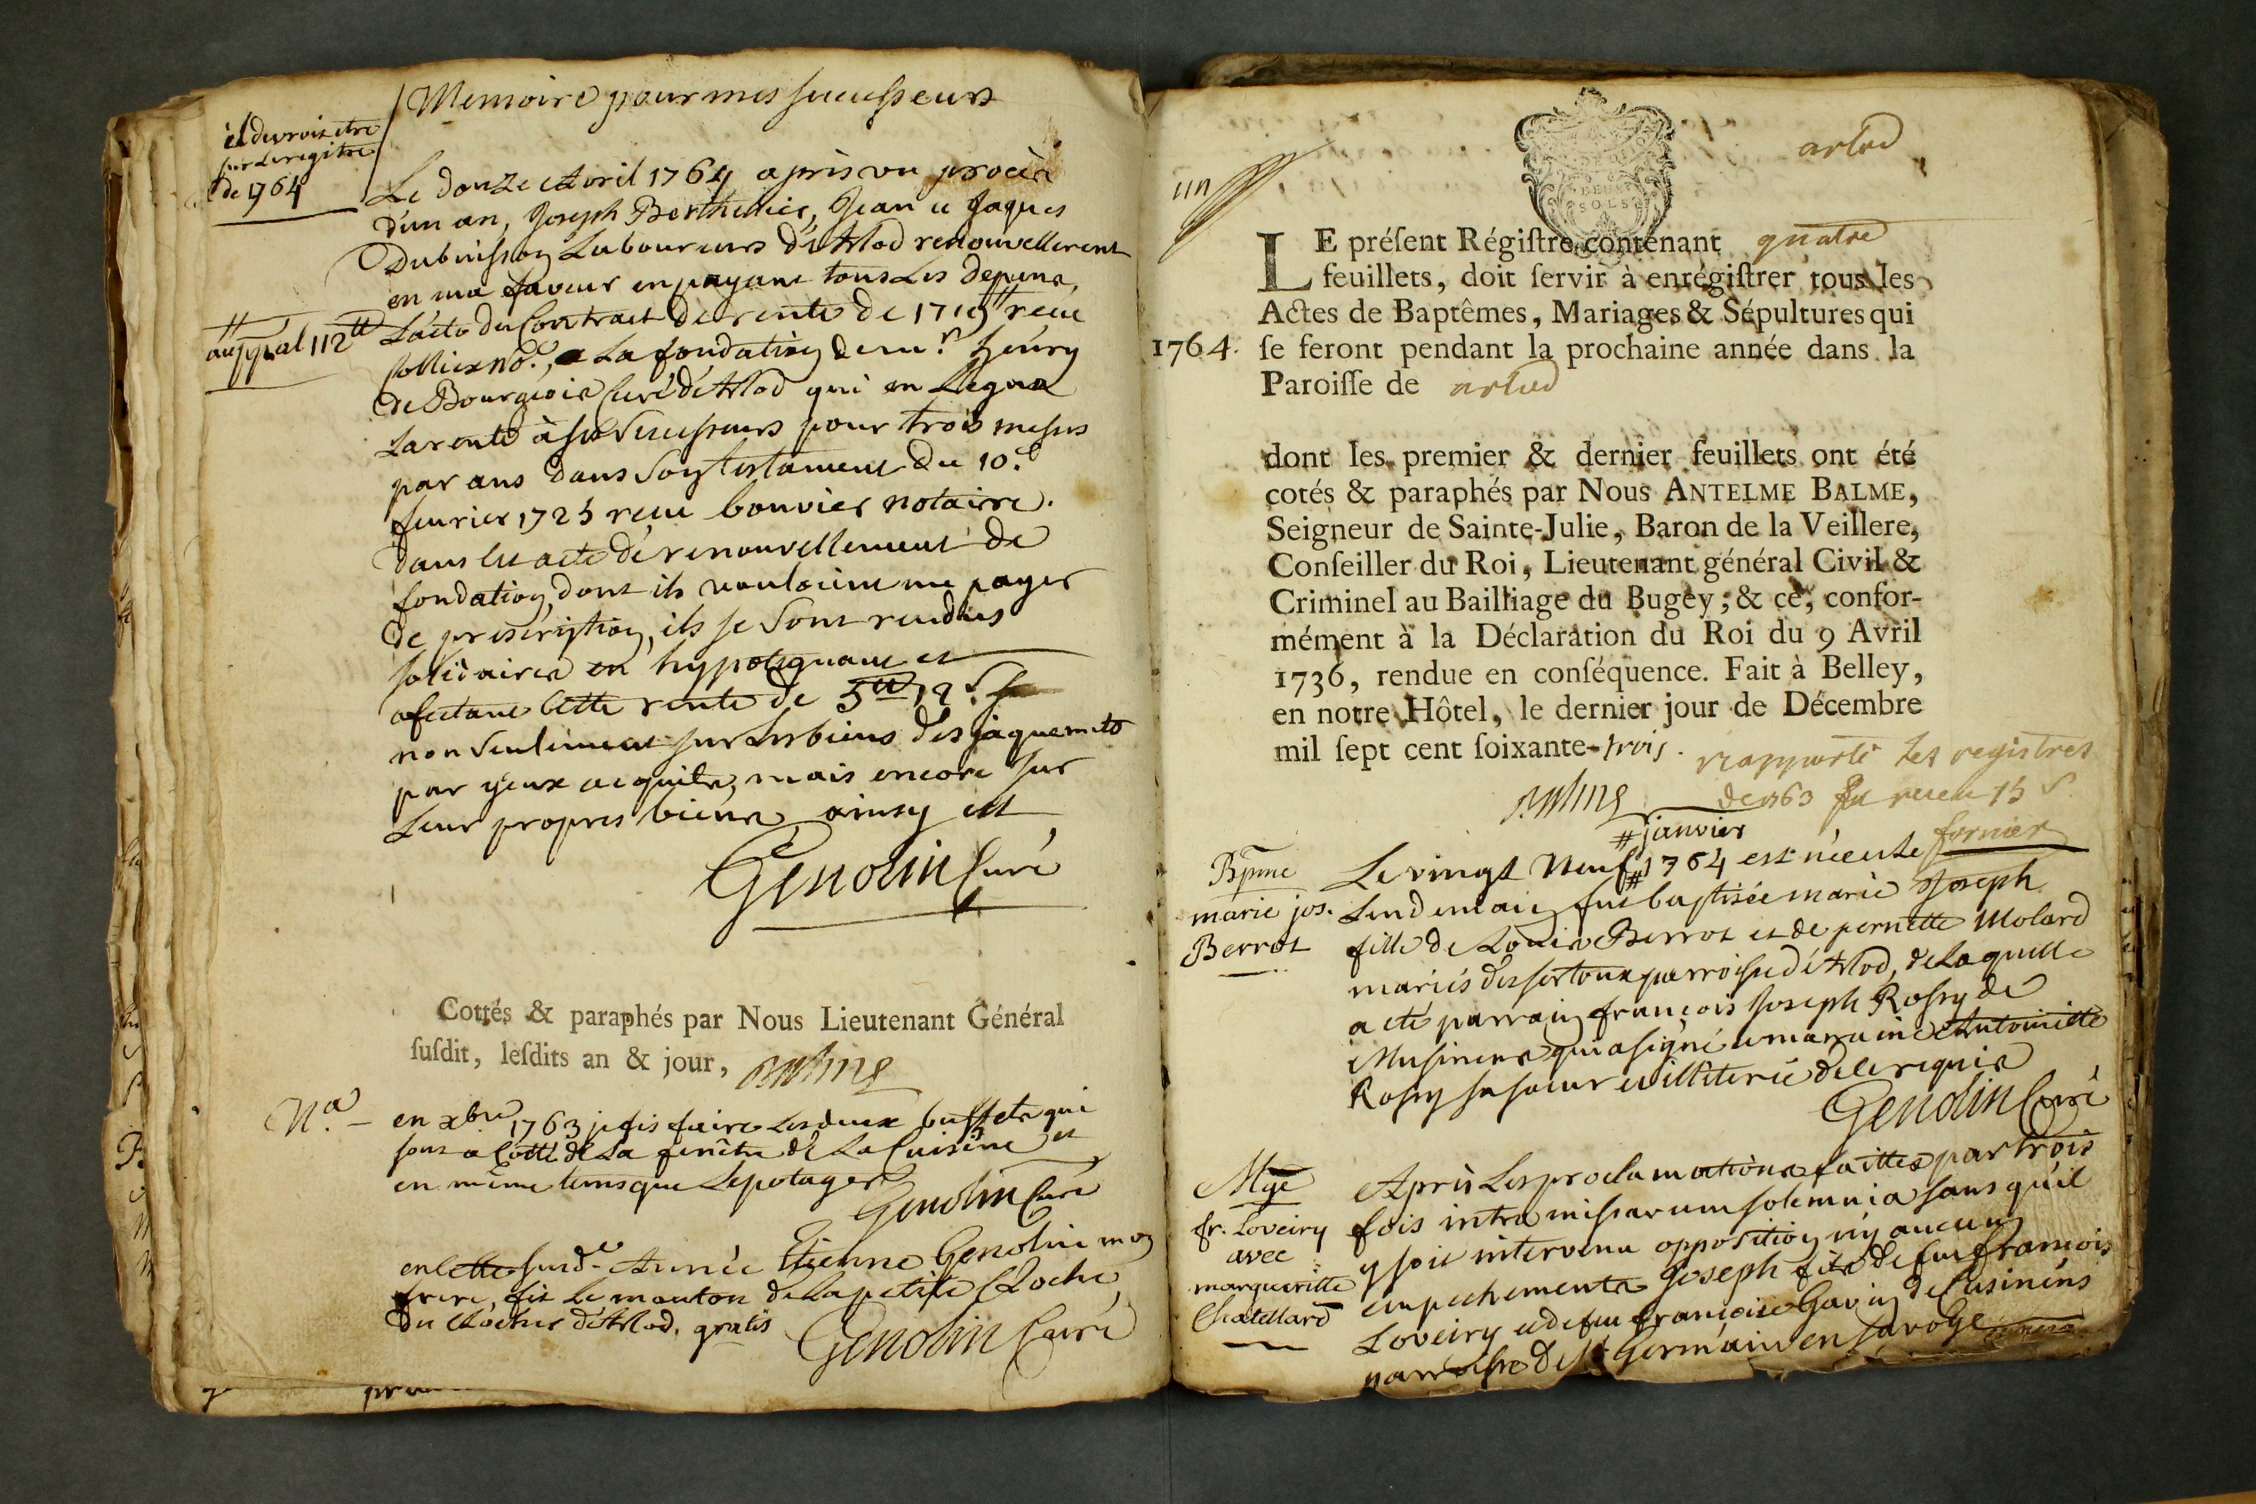 Memoire pour mes successeurs
il devroit etre
sur le registre
de 1764
Le douze Avril 1764 après un procès
d'un an, Joseph Berthelier, Jean et Jaques
Dubuisson Laboureurs d'Arlod renouvellerent
en ma faveur en payant tous les depens,
L'acte du Contract de rente de 1719 reçu
au ppal 112tt
no.e, a La fondation de mr. henry
de Bourgeois Curé d'Arlod qui en Legua
La rente à ses Successeurs pour trois messes
par ans dans Son testament du 10.e
fevrier 1725 reçu bouvier notaire.
dans cet acte de renouvellement de
fondation, dont ils vouloient me payer
de prescription, ils se Sont rendus
solidaires en hypotequant et
afectant Cette rente de 5tt 12s
non Seulement sur Les biens des jaquemets
par yeux acquits, mais encore sur
Leur propres biens ainsy est
Genolin Curé
Cottés & paraphés par Nous Lieutenant Général
ſuſdit, leſdits an & jour, Balme
N.a – en xbre 1763 je fis faire Les deux buffets qui
sont a Cotté de La fenêtre de La Cuisine et
en même tems que Le potager
Genolin Curé
en Cette susd.e Année Etienne Genolin mon
frere, fit Le mouton de La petite Cloche
du Clocher d'Arlod, gratis
Genolin Curé
un
arlod
SOLS
LE préſent Régiſtre contenant quatre
feuillets, doit ſervir à enrégiſtrer tous les
Actes de Baptêmes, Mariages & Sépultures qui
1764. ſe feront pendant la prochaine année dans la
Paroiſſe de arlod
dont les premier & dernier feuillets ont été
cotés & paraphés par Nous ANTELME BALME,
Seigneur de Sainte-Julie, Baron de la Veillere,
Conſeiller du Roi, Lieutenant général Civil &
Criminel au Bailliage du Bugey ; & ce, confor-
mément à la Déclaration du Roi du 9 Avril
1736, rendue en conſéquence. Fait à Belley,
en notre Hôtel, le dernier jour de Décembre
mil ſept cent ſoixante-trois.
rapporté les registres
de 1763 reçu 15 s.
Balme
fornier
# janvier
Bpme
marie jos.
Berrot
Le vingt Neuf # 1764 est née et Le
Lendemain fut baptisée marie Joseph
fille de Louis Berrot et de pernette Molard
mariés d'essertoux parroisse d'Arlod, de Laquelle
a été parrain françois Joseph Rossy de
Musinens qui a signé et marraine Antoinette
Rossy sa soeur illiterée de ce requis
Genolin Curé
Mge
fr. Loveiry
avec
margueritte
Chatellard
Après Les proclamations faittes par trois
fois intra missarum solemnia sans qu'il
y soit intervenu opposition ny aucun
empechements Joseph fils de feu françois
Loveiry et de feu françoise Gavin de Cusinens
parroisse de St Germain en savoye